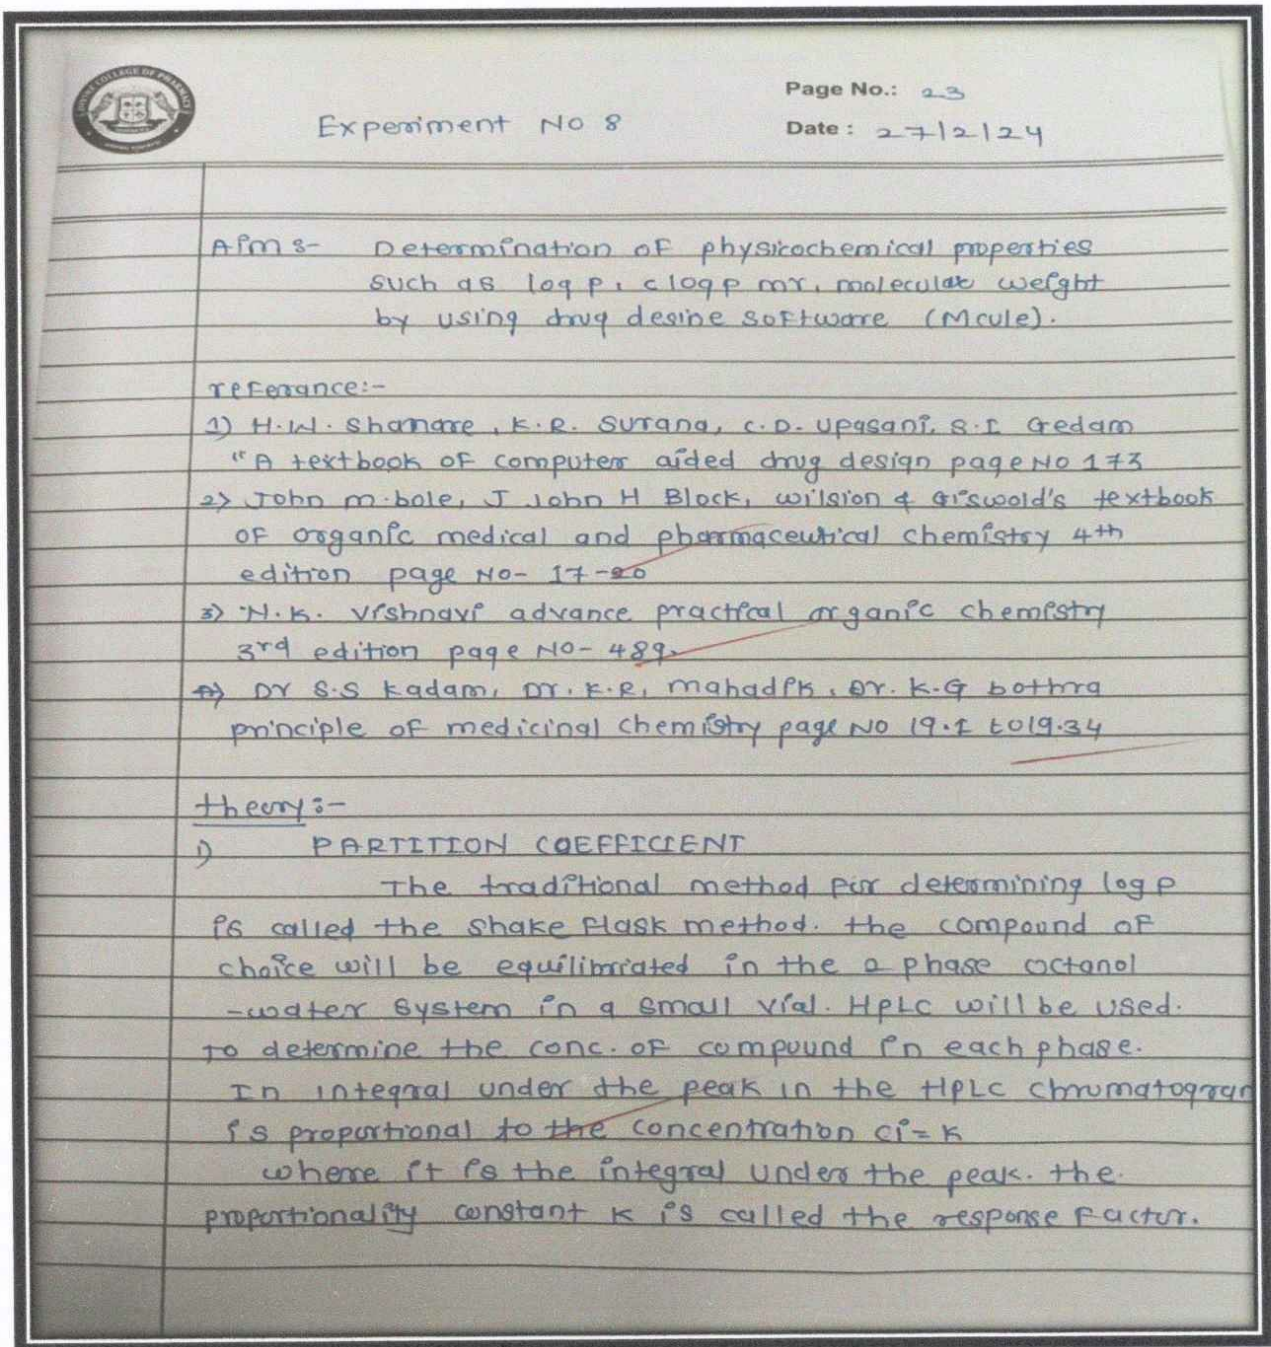 COLLEGE OF PHARMACY
Page No.: 23
Experiment No 8
Date : 27/2/24
Aim :- Determination of physicochemical properties
such as log p, c log p mr, molecular weight
by using drug desine software (Mcule).
referance:-
1) H.W. Shamare, K.R. Surana, C.D. Upasani, S.I Gedam
"A textbook of computer aided drug design page No 173
2) John m.bole, J John H Block, wilsion & Griswold's textbook
of organic medical and pharmaceutical chemistry 4th
edition page No- 17-20
3) N.K. Vishnavi advance practical organic chemistry
3rd edition page No- 489.
4) Dr S.S kadam, Dr. K.R, mahadik, Dr. K.G bothra
principle of medicinal chemistry page No 19.1 to 19.34
theory :-
1) PARTITION COEFFICIENT
The traditional method for determining log p
is called the shake flask method. the compound of
choice will be equilibriated in the 2 phase octanol
-water system in a small vial. HpLc will be used.
to determine the conc. of compound in each phase.
In integral under the peak in the HpLC chromatogram
is proportional to the concentration ci = k
where it is the integral under the peak. the.
proportionality constant k is called the response factor.